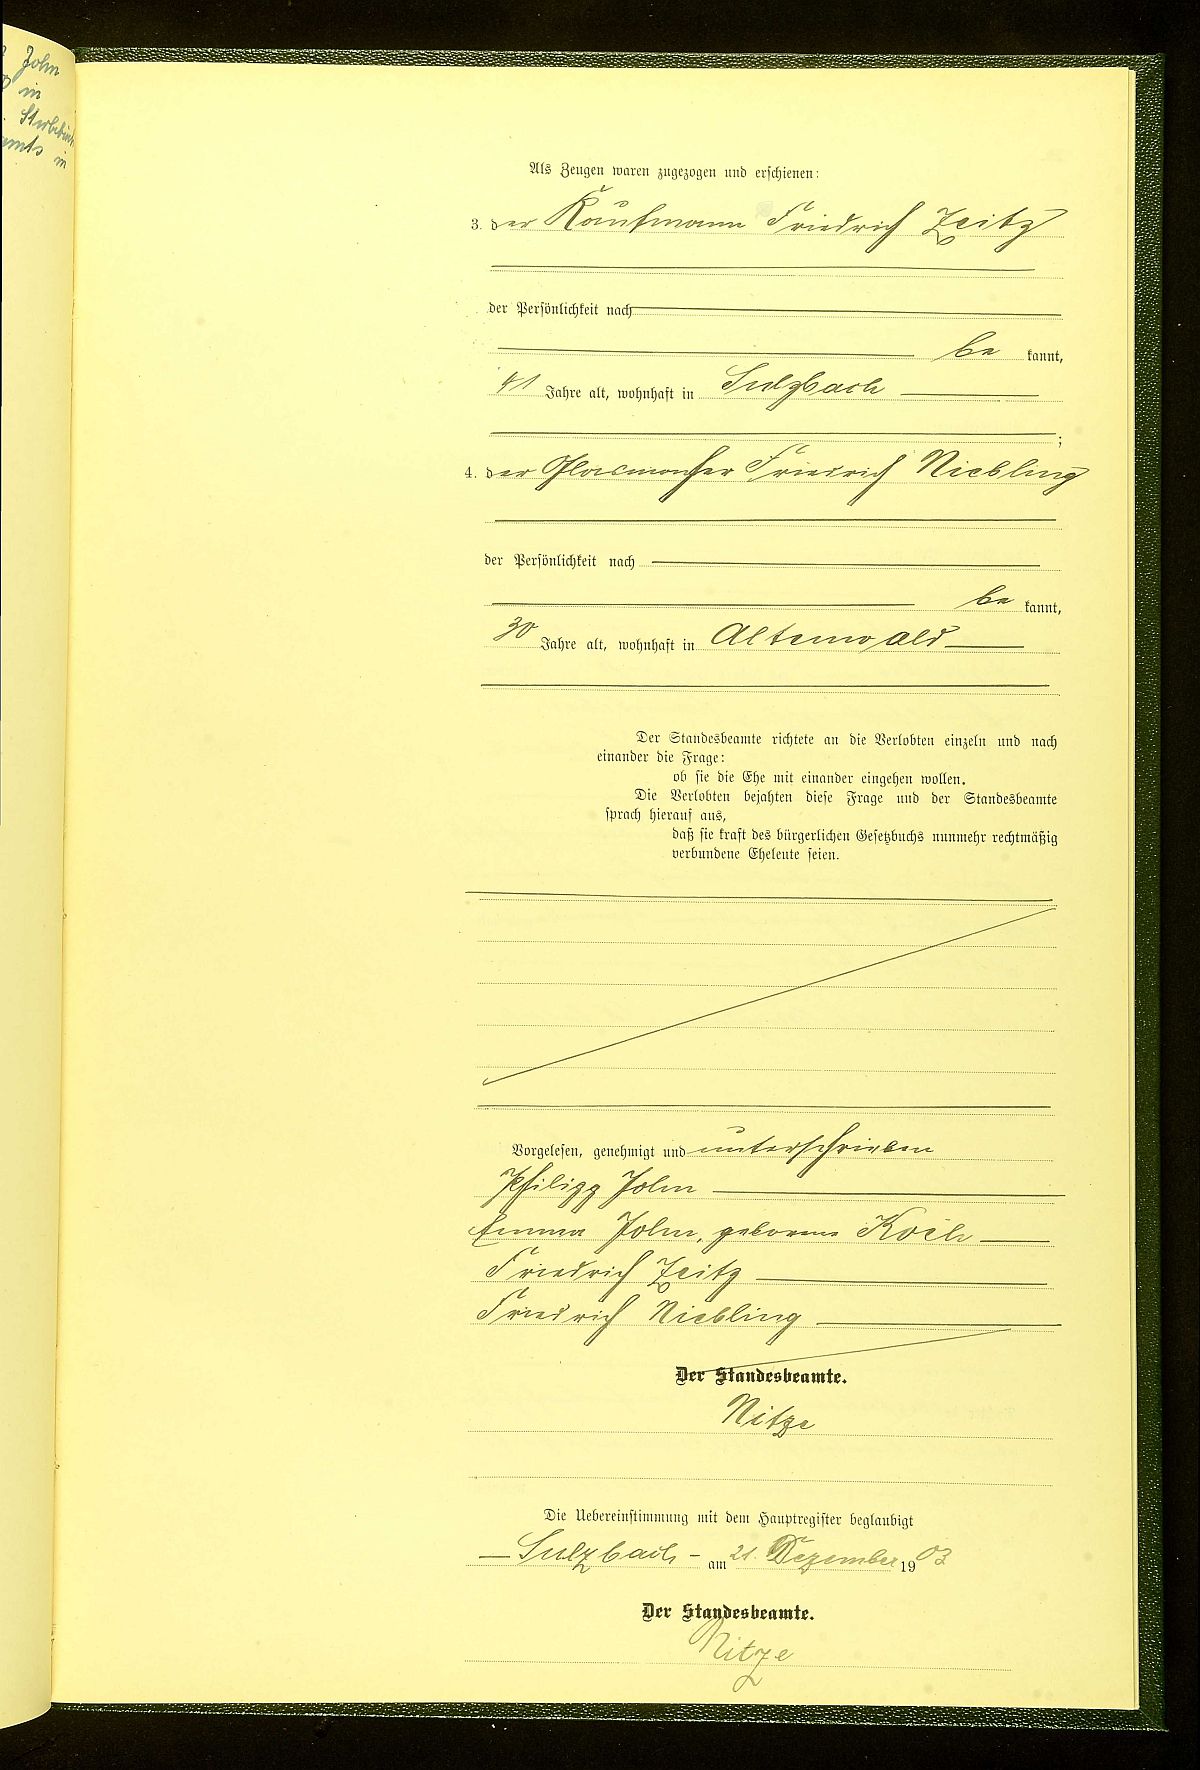 John
in
Sterbebuch
amts in
Als Zeugen waren zugezogen und erschienen:
3. der Kaufmann Friedrich Zeitz
der Persönlichkeit nach
be kannt,
41 Jahre alt, wohnhaft in Sulzbach
;
4. der Glasmacher Friedrich Niebling
der Persönlichkeit nach
be kannt,
30 Jahre alt, wohnhaft in Altenwald
Der Standesbeamte richtete an die Verlobten einzeln und nach
einander die Frage:
ob sie die Ehe mit einander eingehen wollen.
Die Verlobten bejahten diese Frage und der Standesbeamte
sprach hierauf aus,
daß sie kraft des bürgerlichen Gesetzbuchs nunmehr rechtmäßig
verbundene Eheleute seien.
Vorgelesen, genehmigt und unterschrieben
Philipp John
Emma John, geborene Koch
Friedrich Zeitz
Friedrich Niebling
Der Standesbeamte.
Nitze
Die Uebereinstimmung mit dem Hauptregister beglaubigt
Sulzbach - am 21. Dezember 1903
Der Standesbeamte.
Nitze